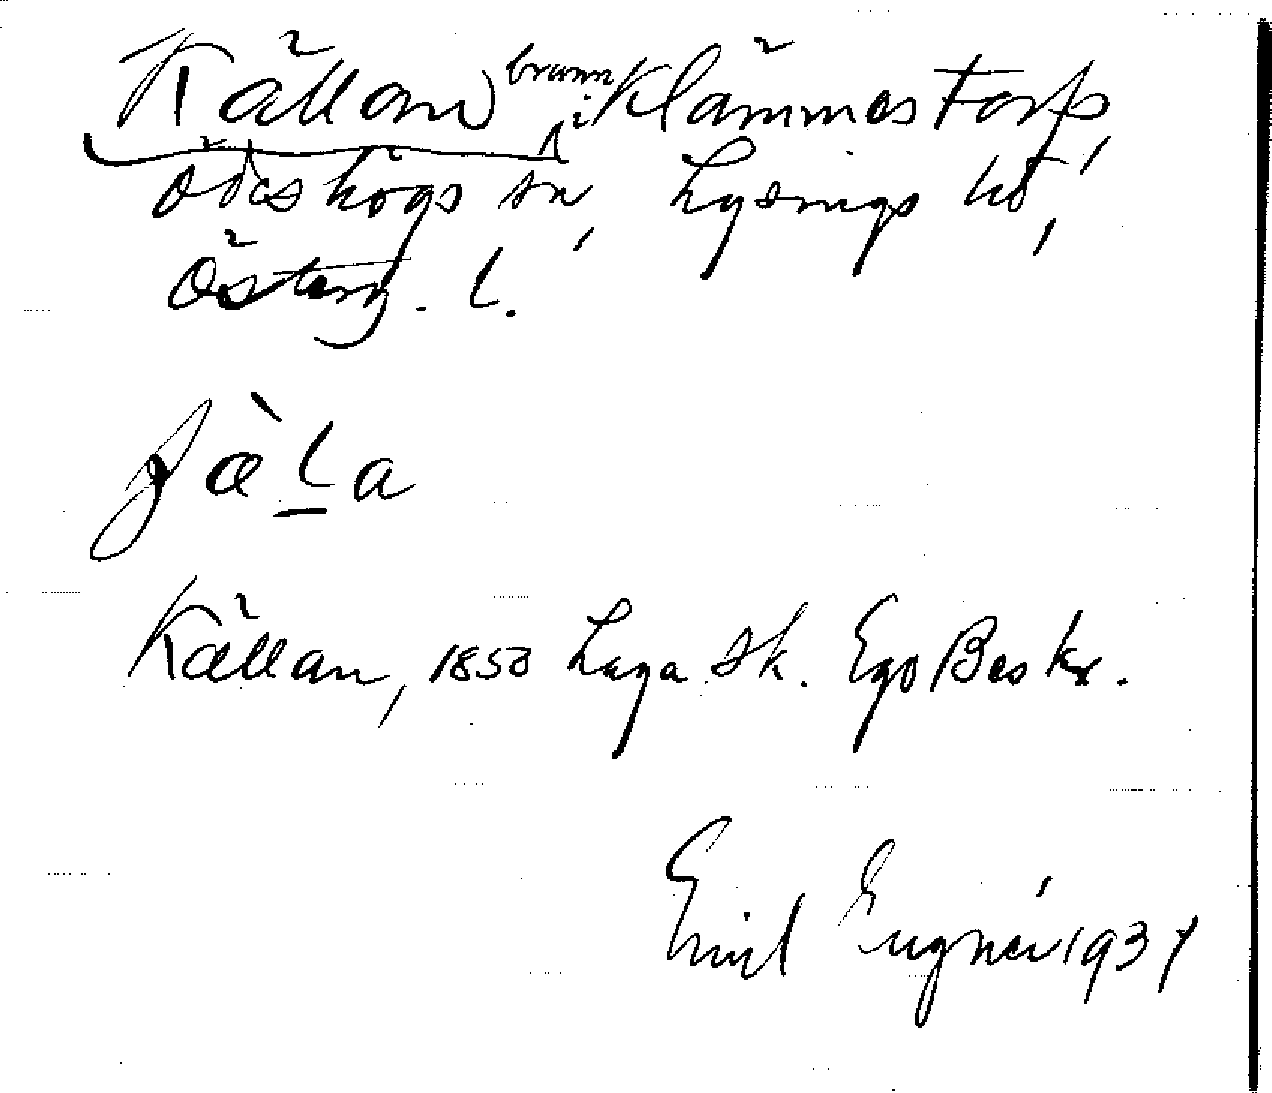 Källan, brunn i Klämmestorp,
Ödeshögs sn, Lysings hd,
Österg. l.
Källan, 1850 Laga sk. Ego Beskr.
Emil Eugnér 1937